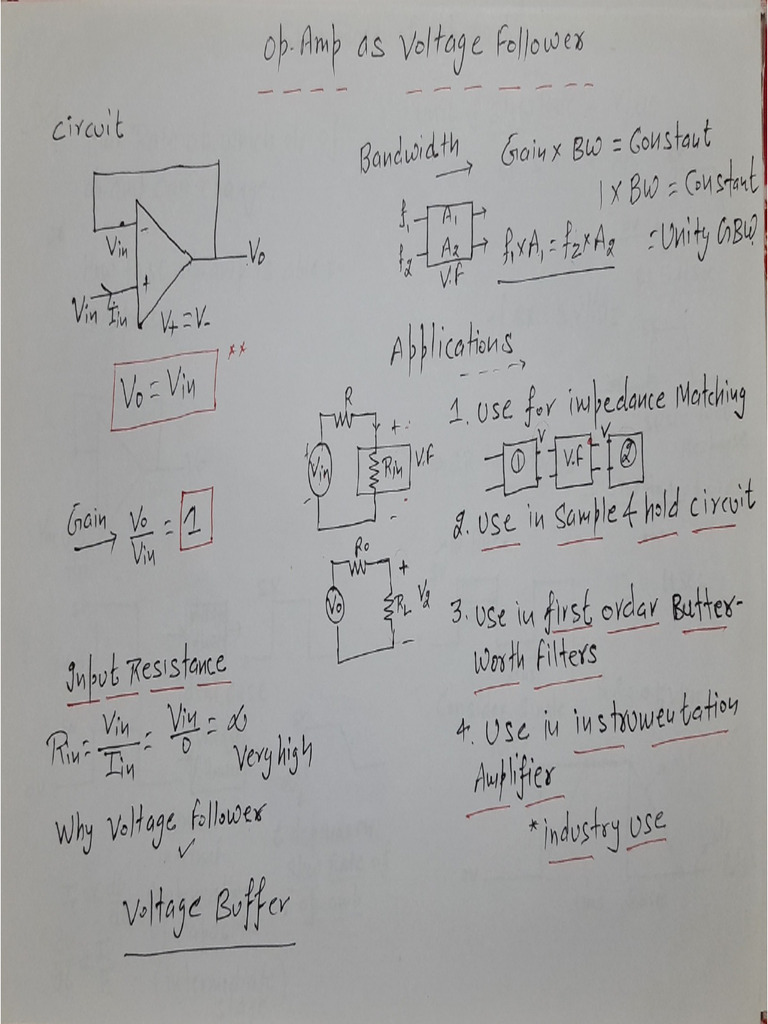 Op-Amp as Voltage Follower
Circuit
Vin
-
+
Vo
Vin Iin
V+ = V-
Vo = Vin **
Gain → Vo/Vin = 1
Input Resistance
Rin = Vin/Iin = Vin/0 = ∝
Very high
Why Voltage follower
✓
Voltage Buffer
Bandwidth → Gain x BW = Constant
1 x BW = Constant
f1 A1
f2 A2
V.F
f1 x A1 = f2 x A2 = Unity GBW
Applications
R
+
Vin
+
-
Rin
V.F
-
Ro
+
Vo
RL
V2
-
1. Use for impedance Matching
① V V.F V ②
2. Use in Sample & hold circuit
3. Use in first ordar Butter-
Worth filters
4. Use in instrumentation
Amplifier
*industry use